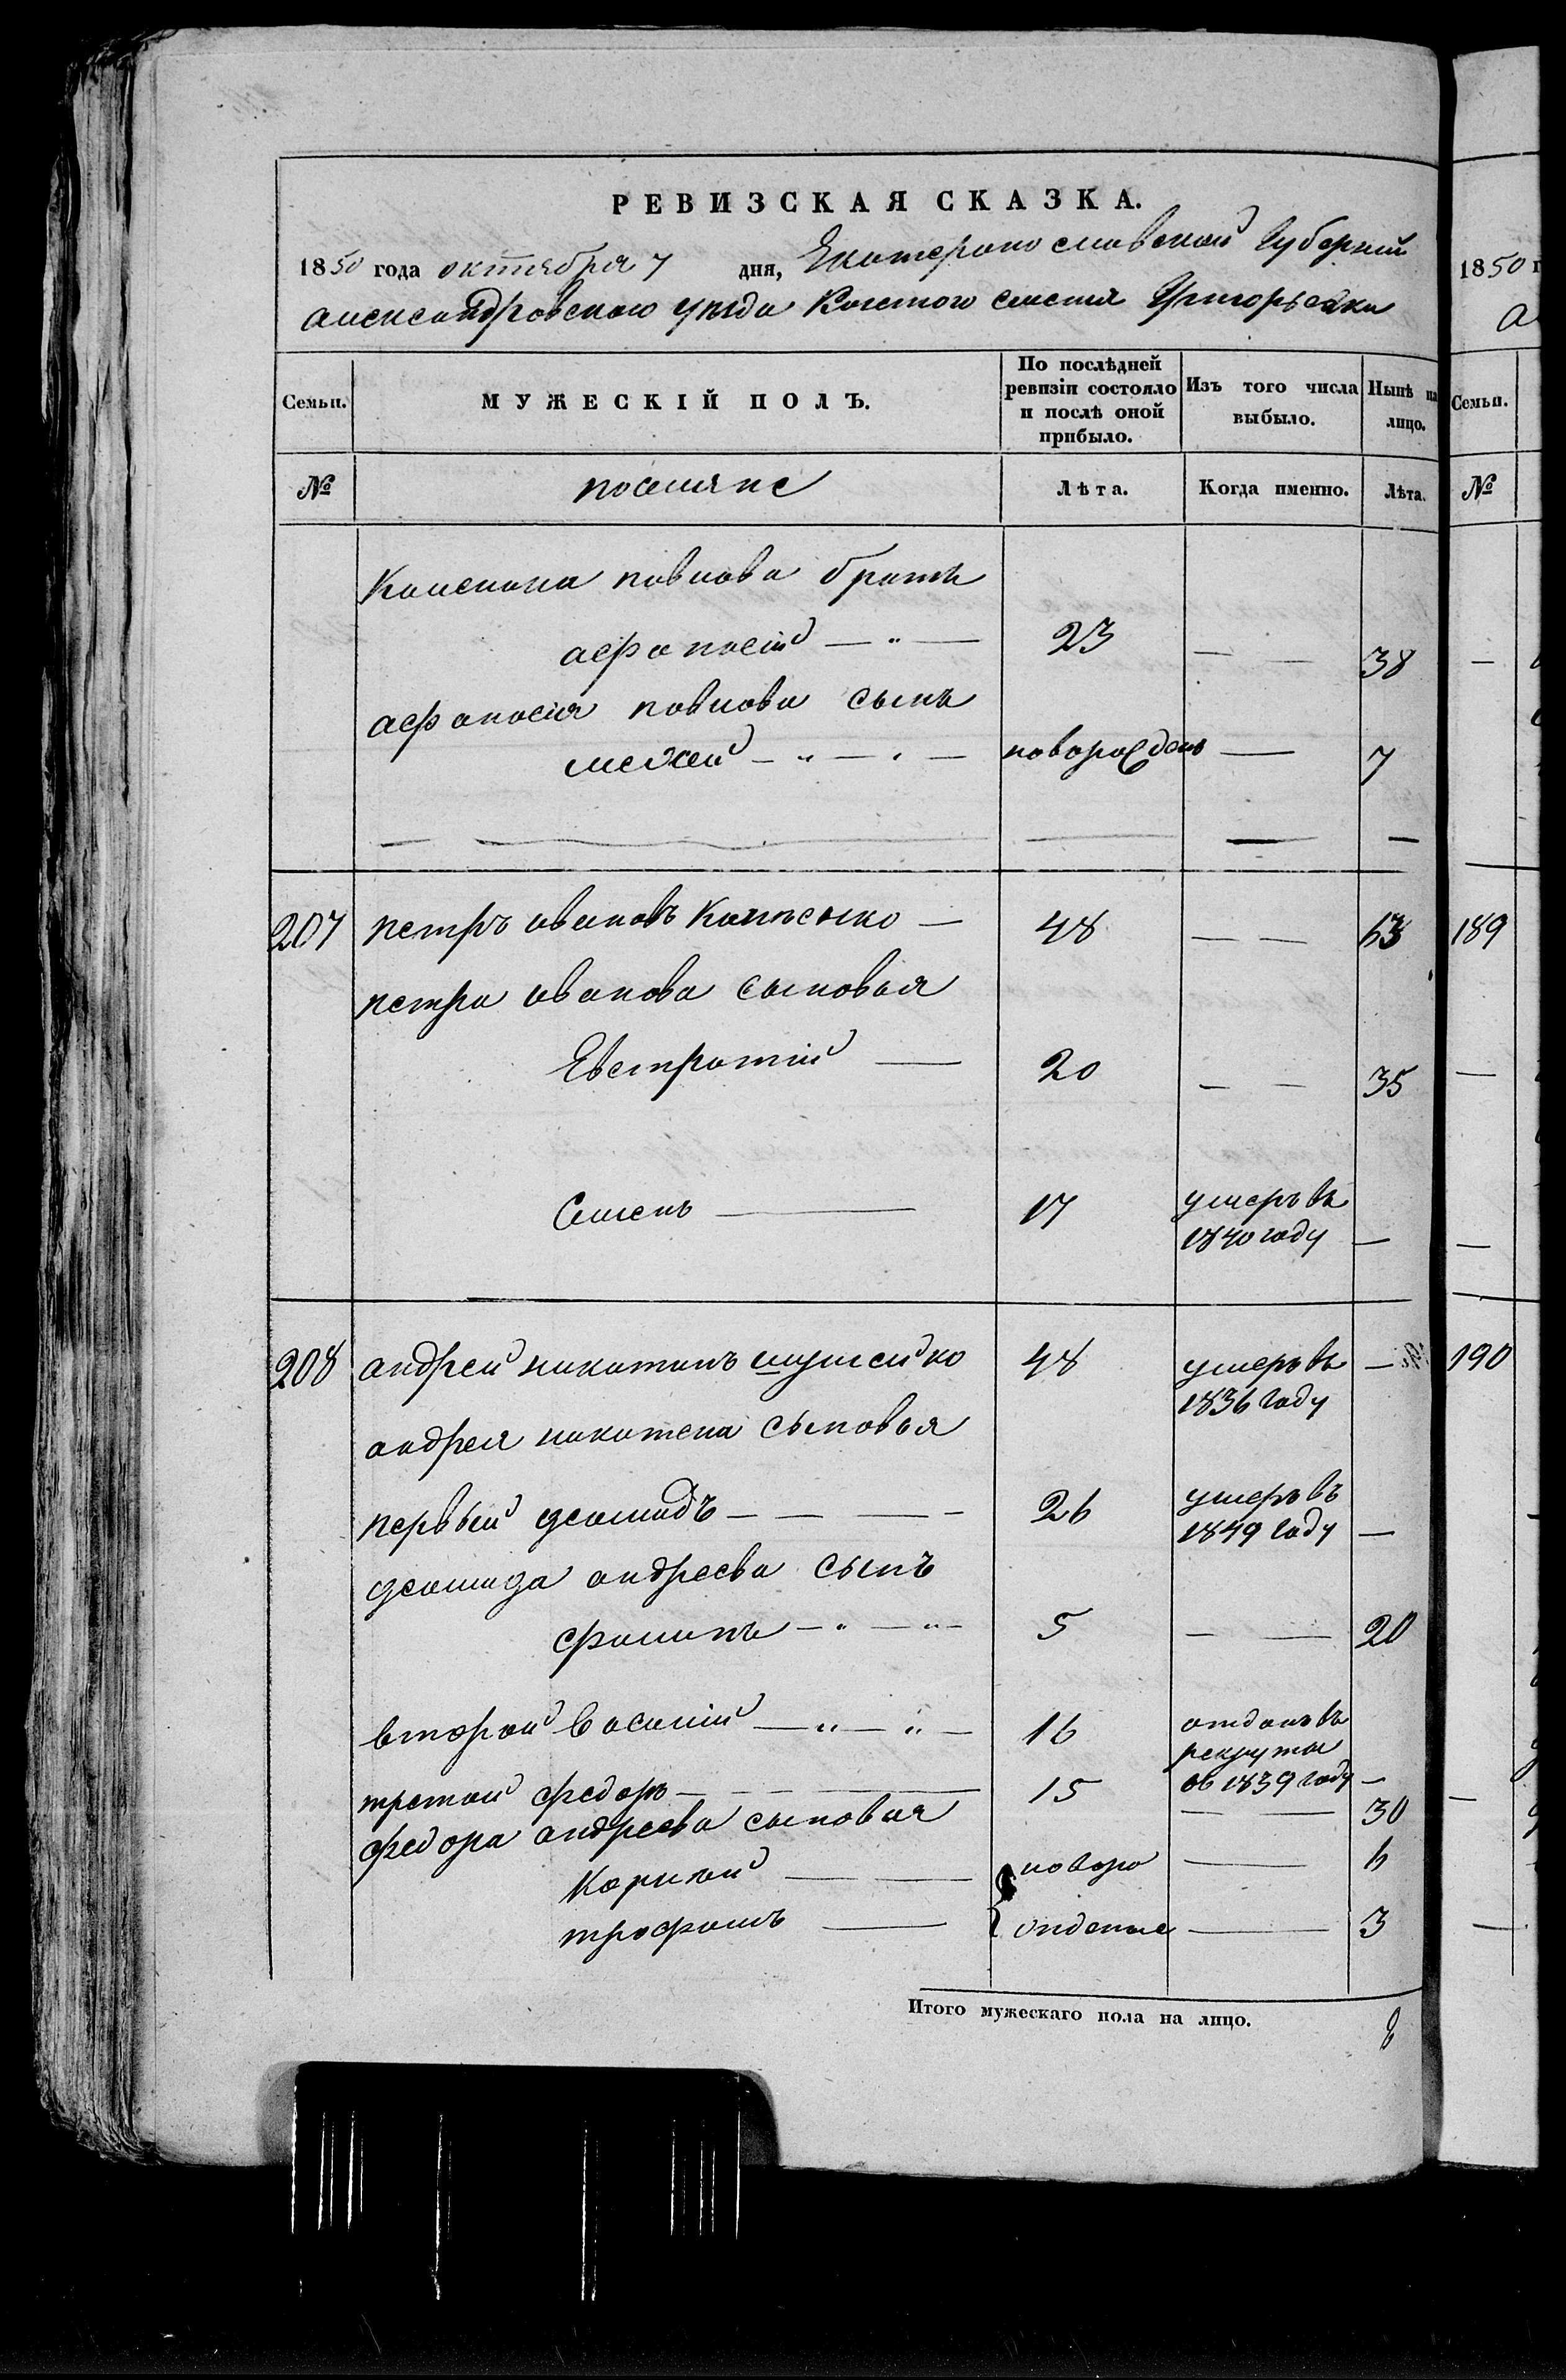 РЕВИЗСКАЯ СКАЗКА.
1850 года октября 7 дня, Екатеринославской Губернии
александровского уезда Козенного селения Григорьевки
Семьи. МУЖЕСКІЙ ПОЛЪ. По послѣдней ревизіи состояло и послѣ оной прибыло. Изъ того числа выбыло. Нынѣ на лицо.
№ поселяне Лѣта. Когда именно. Лѣта.
павлова братъ
афонасій 23 38
афонасія павлова сынъ
новорожденъ 7
207 петръ ивановъ 48 63
петра иванова сыновья
Евстратій 20 35
Семенъ 17 умеръ въ
1840 году
208 андрей никитинъ шулейко 48 умеръ въ
1836 году
андрея никитина сыновья
первый демидъ 26 умеръ въ
1849 году
демида андреева сынъ
филипъ 5 20
второй василій 16 отданъ въ
рекруты
третий федоръ 15 въ 1839 году
30
федора андреева сыновья
Корнѣй новоро 6
трофимъ жденые 3
Итого мужескаго пола на лицо. 8
1850 г
Семьи.
№
189
190